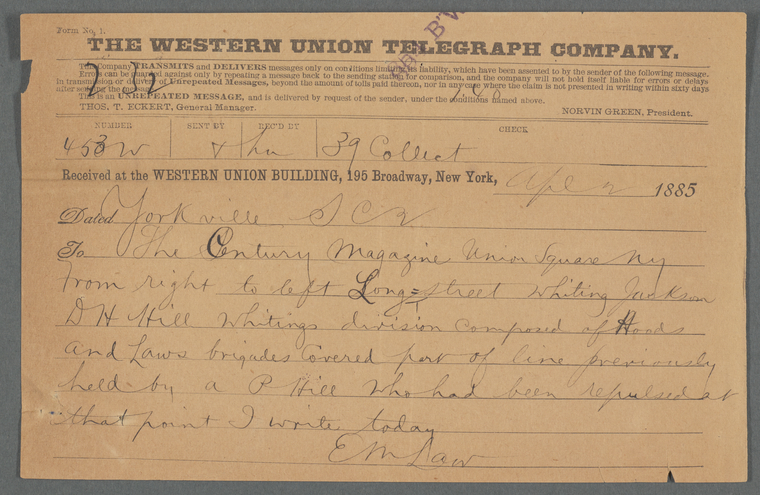 Form No. 1.
THE WESTERN UNION TELEGRAPH COMPANY.
This Company TRANSMITS and DELIVERS messages only on conditions limiting its liability, which have been assented to by the sender of the following message.
Errors can be guarded against only by repeating a message back to the sending station for comparison, and the company will not hold itself liable for errors or delays
in transmission or delivery of Unrepeated Messages, beyond the amount of tolls paid thereon, nor in any case where the claim is not presented in writing within sixty days
after sending the message.
This is an UNREPEATED MESSAGE, and is delivered by request of the sender, under the conditions named above.
THOS. T. ECKERT, General Manager. NORVIN GREEN, President.
NUMBER SENT BY REC'D BY CHECK
453 W 39 Collect
Received at the WESTERN UNION BUILDING, 195 Broadway, New York, Apl 2 1885
Dated Yorkville S C 2
To The Century Magazine Union Square Ny
From right to left Long=street Whiting Jackson
D H Hill Whitings division composed of Hoods
and Laws brigades Covered part of line previously
held by a P Hill Who had been repulsed at
that point I write today
E M Law